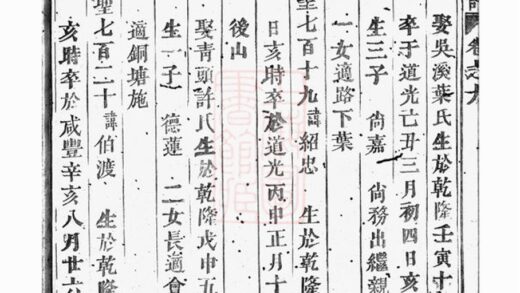 卷之九
娶吳溪葉氏生於乾隆壬寅十
卒于道光丁丑三月初四日亥
生三子 尙嘉 尙務出繼親
一女適路下葉
聖七百十九諱紹忠 生於乾隆
日亥時卒於道光丙申正月十
後山
娶青頭許氏生於乾隆戊申五
生一子 德蓮 二女長適會
適銅塘施
聖七百二十諱伯渡 生於乾隆
亥時卒於咸豐辛亥八月廿六